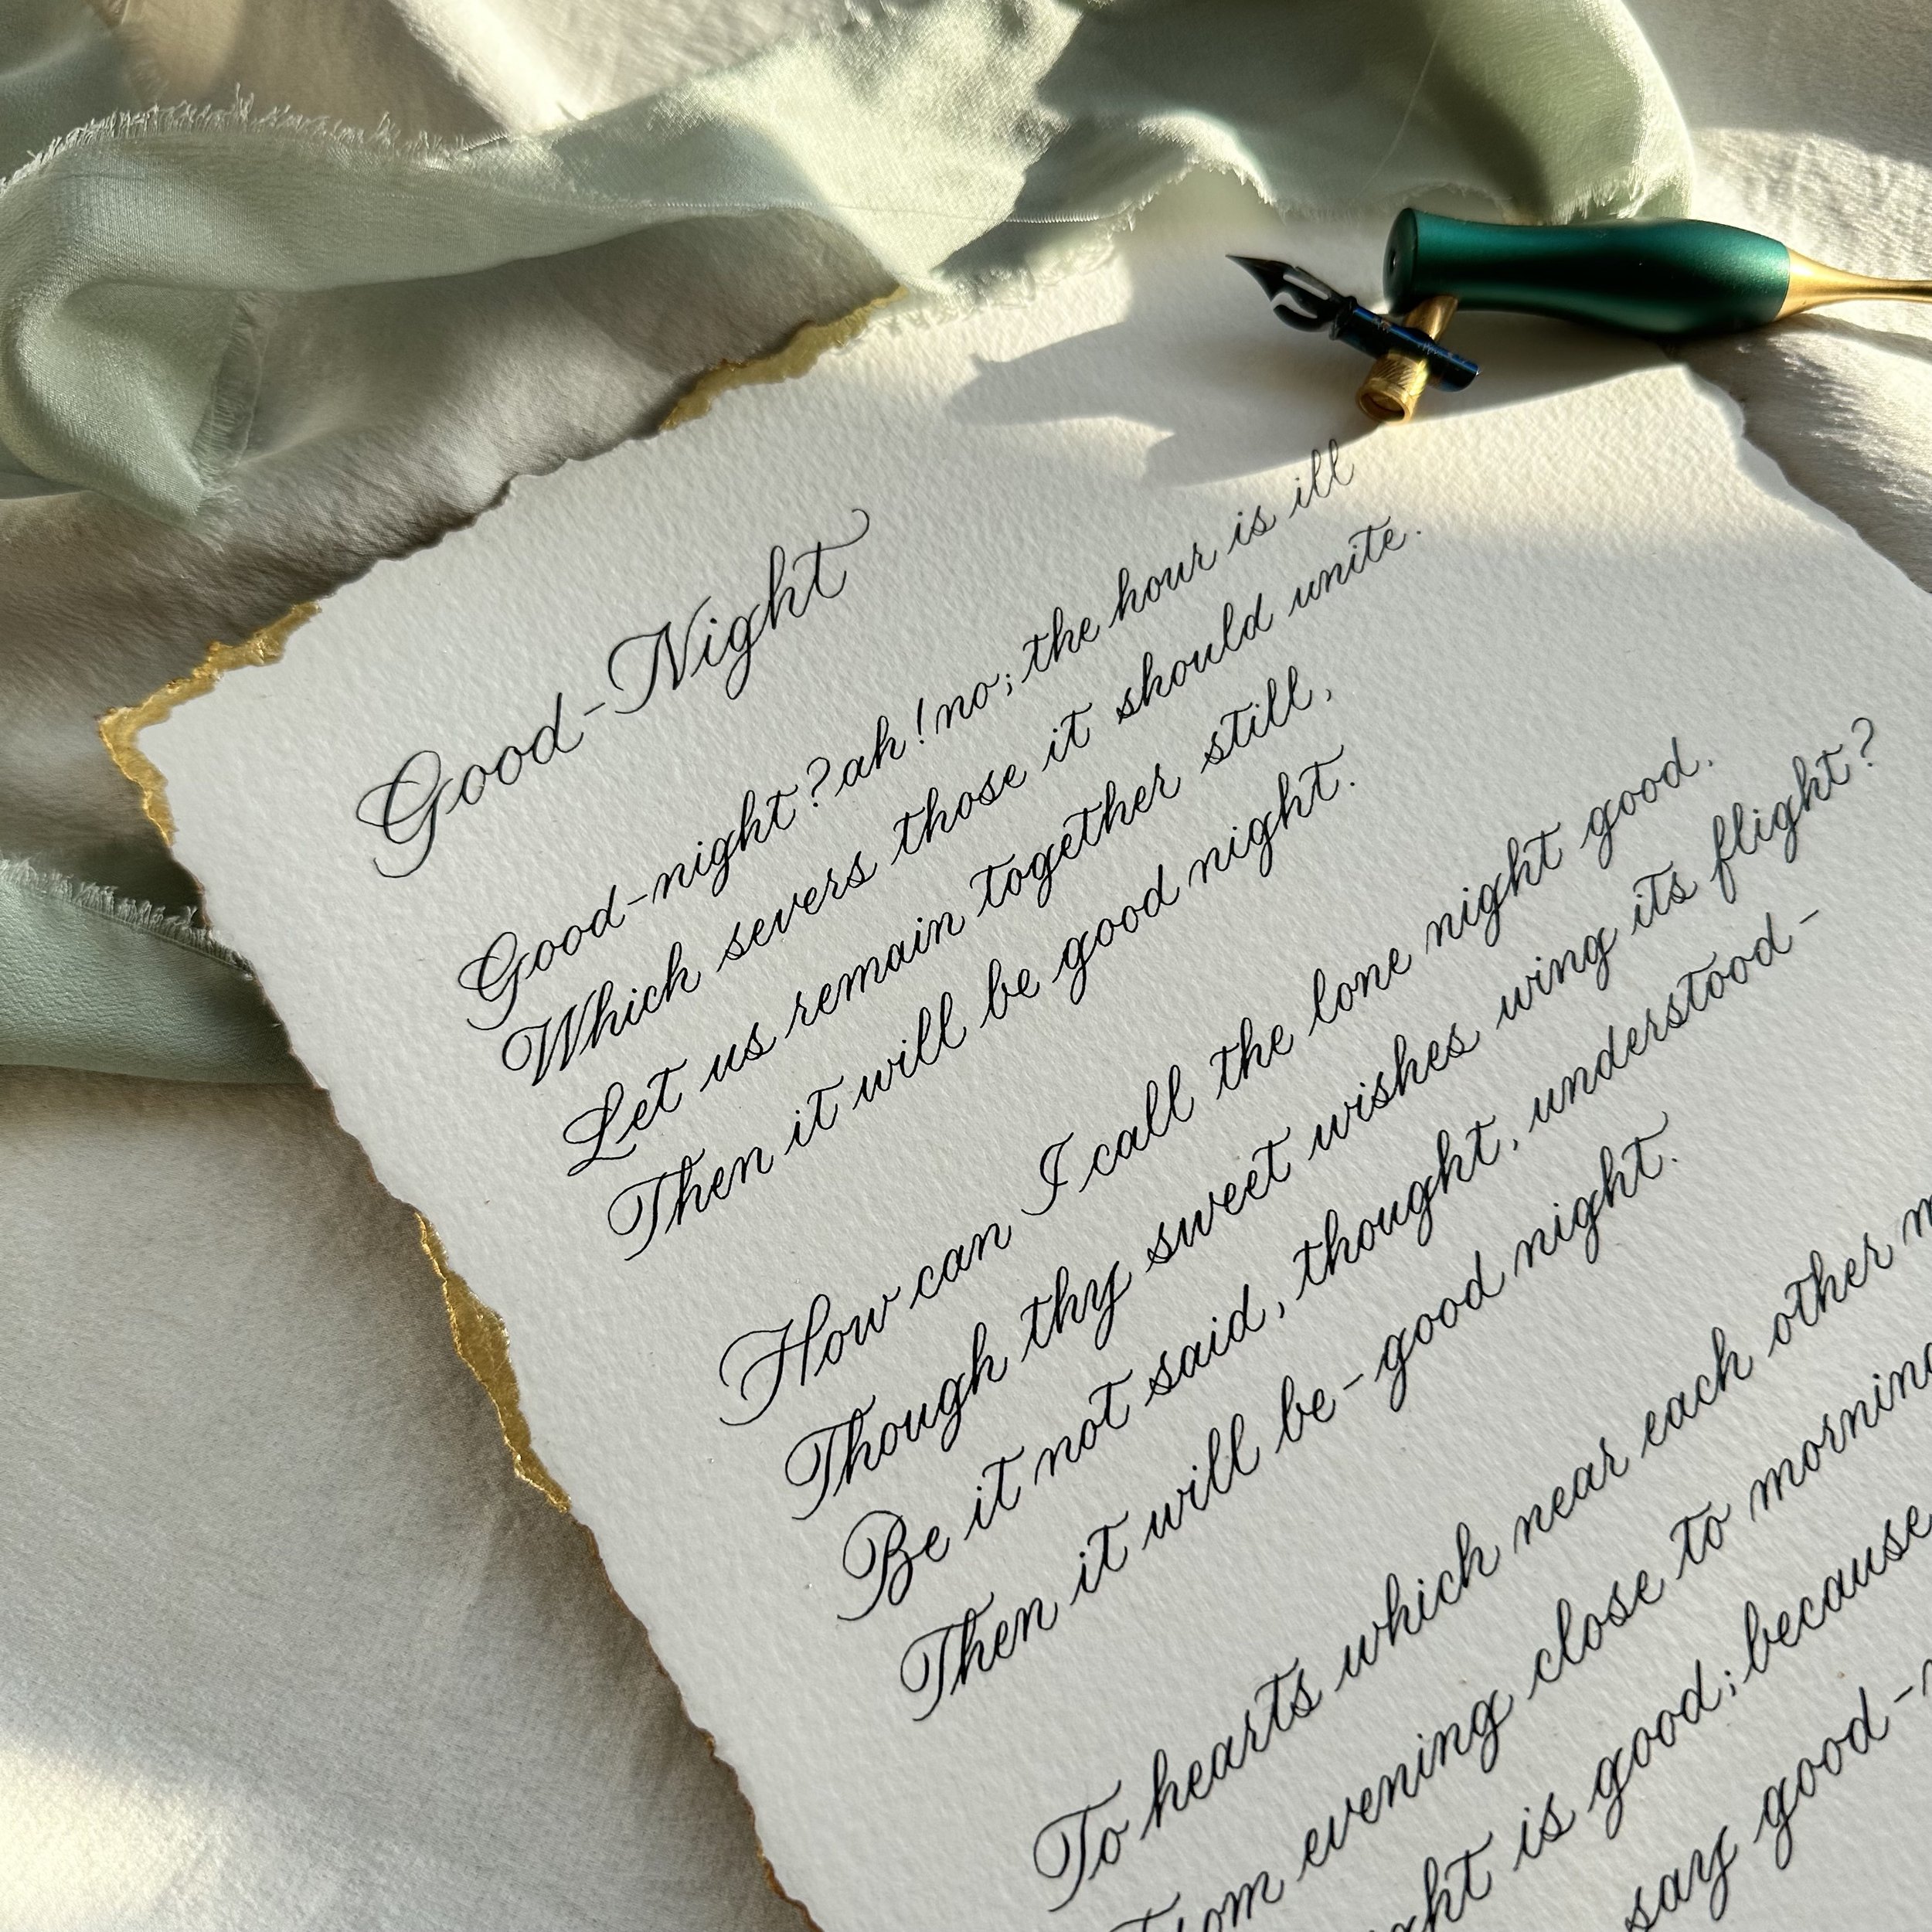 Good-Night
Good-night? ah! no; the hour is ill
Which severs those it should unite.
Let us remain together still,
Then it will be good night.
How can I call the lone night good.
Though thy sweet wishes wing its flight?
Be it not said, thought, understood-
Then it will be-good night.
To hearts which near each other
From evening close to morning
is good; because
say good-